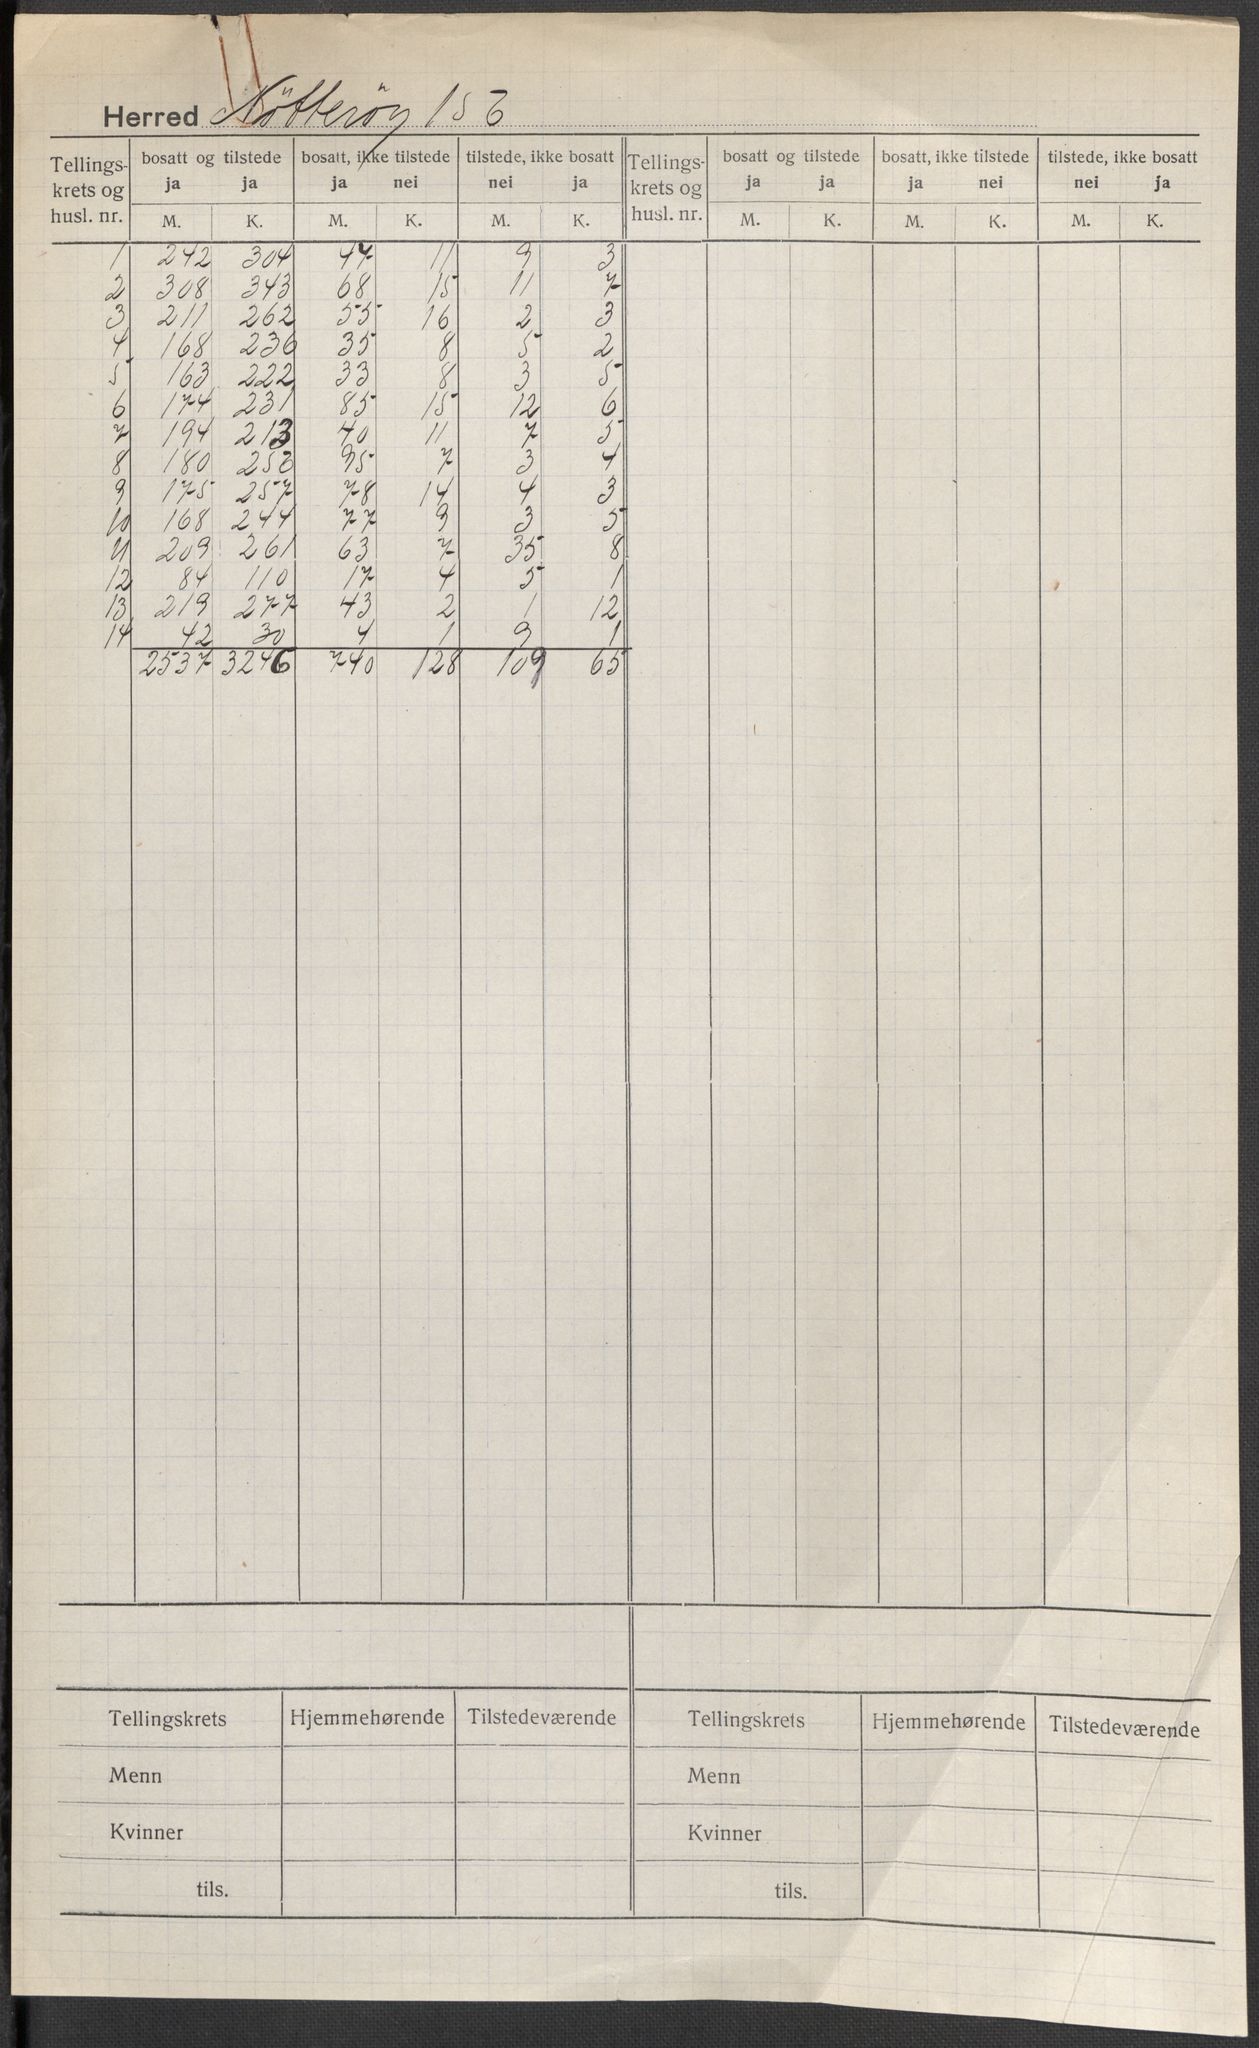 Herred Nötteröy 156
Tellings-krets og husl. nr. bosatt og tilstede bosatt, ikke tilstede tilstede, ikke bosatt Tellings-krets og husl. nr. bosatt og tilstede bosatt, ikke tilstede tilstede, ikke bosatt
ja ja ja nei nei ja ja ja ja nei nei ja
M. K. M. K. M. K. M. K. M. K. M. K.
1 242 304 47 11 9 3
2 308 343 68 15 11 7
3 211 262 55 16 2 3
4 168 236 35 8 5 2
5 163 222 33 8 3 5
6 174 231 85 15 12 6
7 194 213 40 11 7 5
8 180 256 95 7 3 4
9 175 257 78 14 4 3
10 168 244 77 9 3 5
11 209 261 63 7 35 8
12 84 110 17 4 5 1
13 219 277 43 2 1 12
14 42 30 4 1 9 1
2537 3246 740 128 109 65
Tellingskrets Hjemmehørende Tilstedeværende Tellingskrets Hjemmehørende Tilstedeværende
Menn Menn
Kvinner Kvinner
tils. tils.